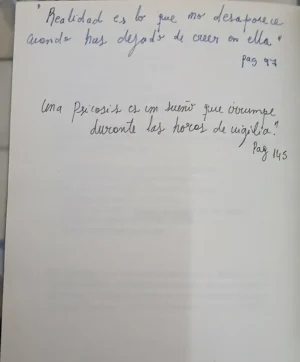 "Realidad es lo que no desaparece
cuando has dejado de creer en ella"
pag 97
Una Psicosis es un sueño que irrumpe
durante las horas de vigilia".
Pag 145